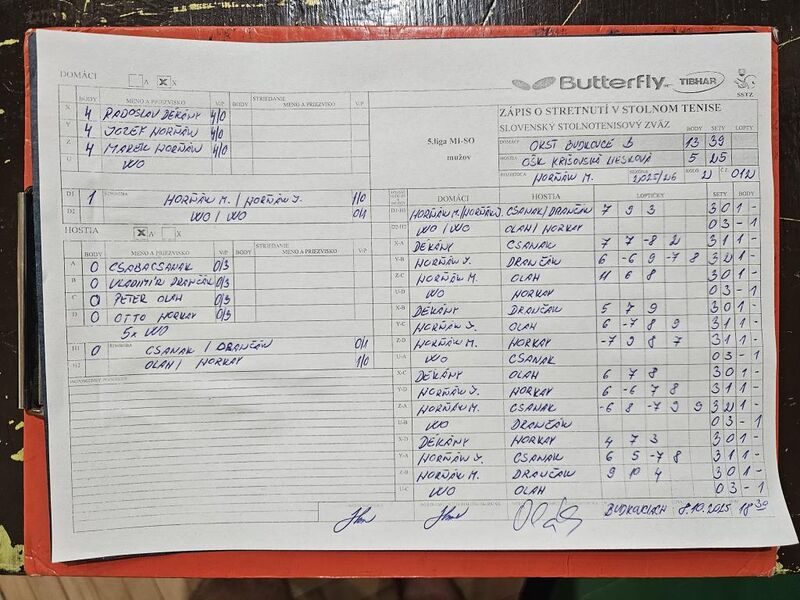 DOMÁCI A X X
Butterfly TIBHAR SSTZ
BODY MENO A PRIEZVISKO V/P BODY STRIEDANIE MENO A PRIEZVISKO V/P
X 4 RADOSLAV DEKÁNY 4/0
Y 4 JOZEF HORŇÁK 4/0
Z 4 MAREK HORŇÁK 4/0
U WO
5.liga MI-SO mužov
ZÁPIS O STRETNUTÍ V STOLNOM TENISE
SLOVENSKÝ STOLNOTENISOVÝ ZVÄZ BODY SETY LOPTY
DOMÁCI OKST BUDKOVCE B 13 39
HOSTIA OŠK KRIŠOVSKÁ LIESKOVÁ 5 25
ROZHODCA HORŇÁK M. 2025/26 KOLO 2 Č.Z. 012
D1 1 HORŇÁK M. / HORŇÁK J. 1/0
D2 WO / WO 0/1
HOSTIA A X
BODY MENO A PRIEZVISKO V/P BODY STRIEDANIE MENO A PRIEZVISKO V/P
A 0 CSABA CSANAK 0/3
B 0 VLADIMÍR DRANČÁK 0/3
C 0 PETER OLAH 0/3
D 0 OTTO HORKAY 0/3
5x WO
H1 0 CSANAK / DRANČÁK 0/1
H2 OLAH / HORKAY 1/0
DOMÁCI HOSTIA LOPTIČKY SETY BODY
D1-H1 HORŇÁK M./HORŇÁK J. CSANAK/DRANČÁK 7 9 3 3 0 1 -
D2-H2 WO / WO OLAH/ HORKAY 0 3 - 1
X-A DEKÁNY CSANAK 7 7 -8 2 3 1 1 -
Y-B HORŇÁK J. DRANČÁK 6 -6 9 -7 8 3 2 1 -
Z-C HORŇÁK M. OLAH 11 6 8 3 0 1 -
U-D WO HORKAY 0 3 - 1
X-B DEKÁNY DRANČÁK 5 7 9 3 0 1 -
Y-C HORŇÁK J. OLAH 6 -7 8 9 3 1 1 -
Z-D HORŇÁK M. HORKAY -7 9 8 7 3 1 1 -
U-A WO CSANAK 0 3 - 1
X-C DEKÁNY OLAH 6 7 8 3 0 1 -
Y-D HORŇÁK J. HORKAY 6 -6 7 8 3 1 1 -
Z-A HORŇÁK M. CSANAK -6 8 -7 9 9 3 2 1 -
U-B WO DRANČÁK 0 3 - 1
X-D DEKÁNY HORKAY 4 7 3 3 0 1 -
Y-A HORŇÁK J. CSANAK 6 5 -7 8 3 1 1 -
Z-B HORŇÁK M. DRANČÁK 9 10 4 3 0 1 -
U-C WO OLAH 0 3 - 1
BUDKOVCIACH 8.10.2025 18 30